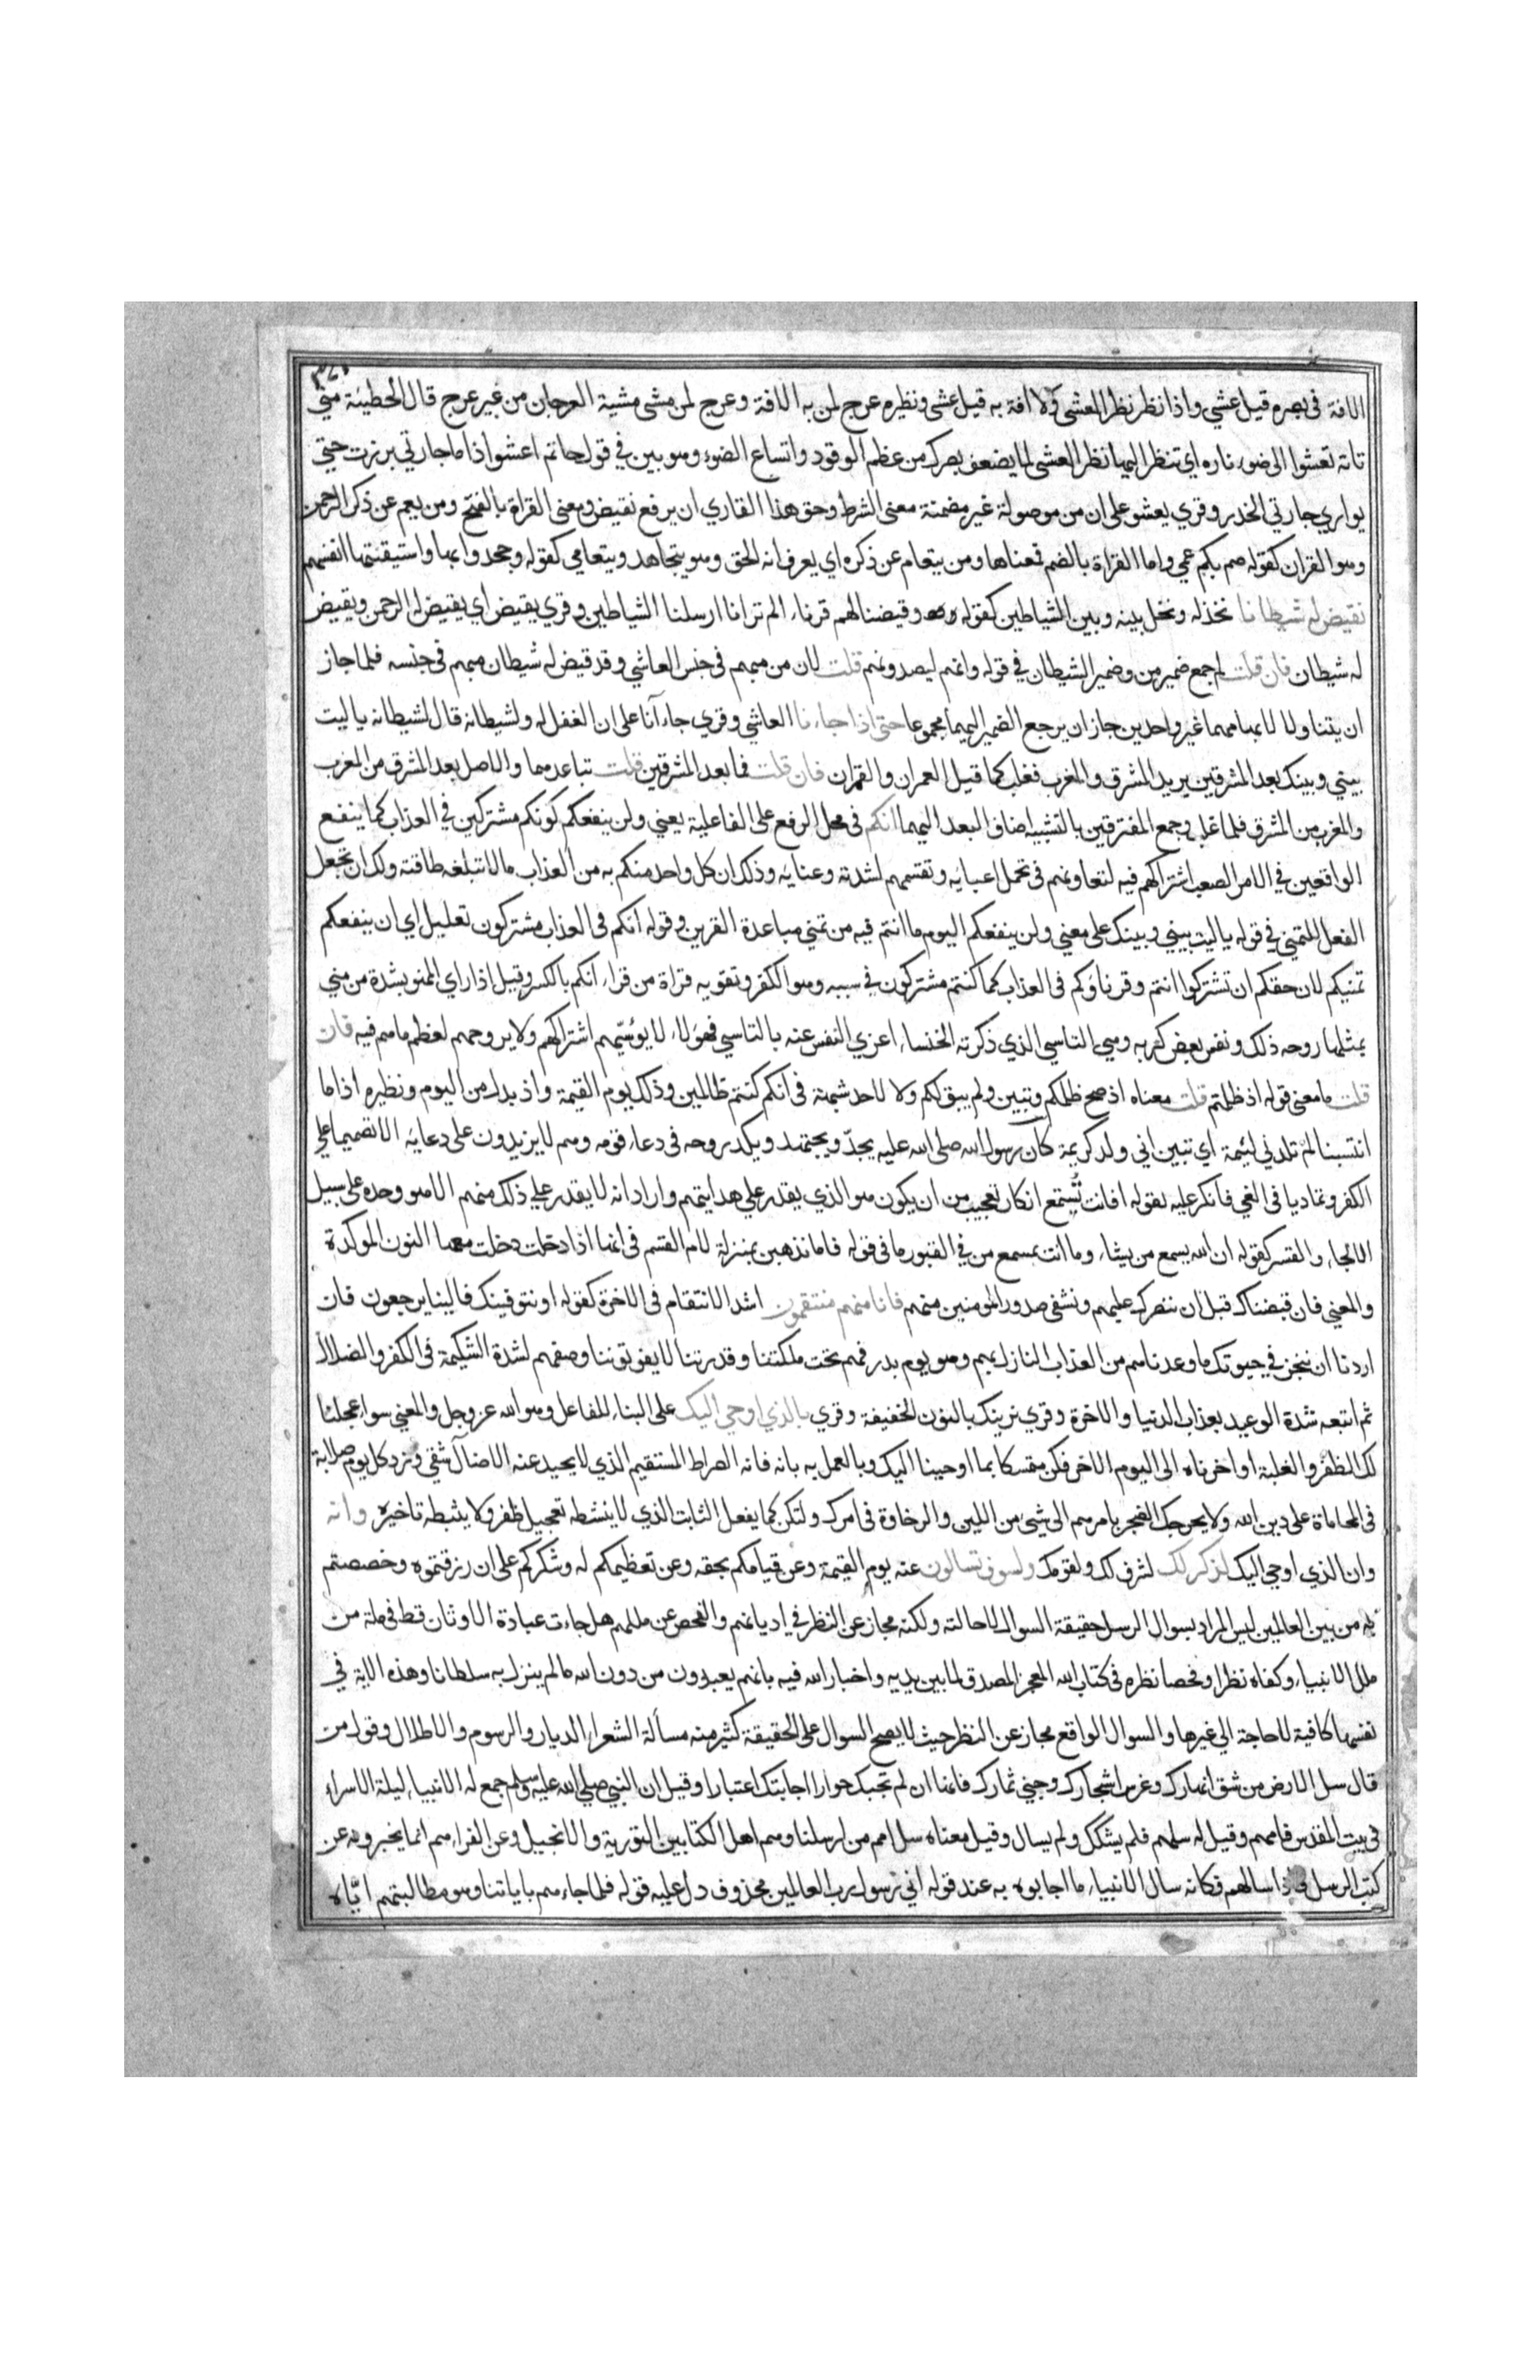 ٣٧٠
الافة في بصره قيل عشي واذا نظر نظر العشي ولا افة به قيل عشى ونظيره عرج لمن به الافة وعرج لمن مشى مشية العرجان من غير عرج قال الحطيئة متى
تاته تعشوا الى ضوء ناره اي تنظر اليها نظر العشي لما يضعف بصرك من عظم الوقود واتساع الضوء وهو بين في قول حاتم اعشوا اذا ما جارتي برزت حتى
يواري جارتي الخدر وقري يعشو على ان من موصولة غير مضمنة معنى الشرط وحق هذا القاري ان يرفع نقيض ومعنى القراة بالفتح ومن يعم عن ذكر الرحمن
وهو القران كقوله صم بكم عمي واما القراة بالضم فمعناها ومن يتعام عن ذكره اي يعرف انه الحق وهو يتجاهد ويتعامي كقوله وجحدوا بها واستيقنتها انفسهم
نقيض له شيطانا نخذله ونخل بينه وبين الشياطين كقوله وقيضنا لهم قرناء الم تر انا ارسلنا الشياطين وقري يقيض اي يقيض له الرحمن ويقيض
له شيطان فان قلت لم جمع ضمير من وضمير الشيطان في قوله وانهم ليصدونهم قلت لان من مبهم في جنس العاشي وقد قيض له شيطان مبهم في جنسه فلما جاز
ان يتناولا لابهامهما غير واحدين جاز ان يرجع الضمير اليهما مجموعا حتى اذا جاءنا العاشي وقري جاءآنا على ان الفعل له ولشيطانه قال لشيطانه ياليت
بيني وبينك بعد المشرقين يريد المشرق والمغرب فغلب كما قيل العمران والقمران فان قلت فما بعد المشرقين قلت تباعدهما والاصل بعد المشرق من المغرب
والمغرب من المشرق فلما غلب وجمع المفترقين بالتثنية اضاف البعد اليهما انكم في محل الرفع على الفاعلية يعني ولن ينفعكم كونكم مشتركين في العذاب كما ينفع
الواقعين في الامر الصعب اشتراكهم فيه لتعاونهم في تحمل اعبايه وتقسمهم لشدته وعنايه وذلك ان كل واحد منكم به من العذاب مالا تبلغه طاقته ولك ان تجعل
الفعل للتمني في قوله ياليت بيني وبينك على معني ولن ينفعكم اليوم ما انتم فيه من تمني مباعدة القرين وقوله انكم في العذاب مشتركون تعليل اي لن ينفعكم
تمنيكم لان حقكم ان تشتركوا انتم وقرناؤكم في العذاب كما كنتم مشتركون في سببه وهو الكفر وتقويه قراة من قراء انكم بالكسر وقيل اذا راي الممنو بشدة من مني
بمثلها روحه ذلك ونفس بعض كربه وهي التاسي الذي ذكرته الخنساء اعزي النفس عنه بالتاسي فهؤلاء لا يؤسيهم اشتراكهم ولا يروحهم لعظم ما هم فيه فان
قلت ما معني قوله اذ ظلمتم قلت معناه اذ صح ظلمكم وتبين ولم يبق لكم ولا لاحد شبهة في انكم كنتم ظالمين وذلك يوم القيمة واذ بدل من اليوم ونظيره اذا ما
انتسبنا لم تلدني لئيمة اي تبين اني ولد كريمة كان رسول الله صلى الله عليه يجدّ ويجتهد ويكد روحه في دعاء قومه وهم لا يزيدون على دعايه الا تصميما علي
الكفر وتماديا في الغي فانكر عليه بقوله افانت تُسمع انكار تعجيب من ان يكون هو الذي يقدر علي هدايتهم واراد انه لا يقدر على ذلك منهم الا هو وحده على سبيل
الالجاء والقسر كقوله ان الله يسمع من يشاء وما انت بمسمع من في القبور ما في قوله فاما نذهبن بمنزلة لام القسم في انها اذا دخلت دخلت معها النون الموكدة
والمعني فان قبضناك قبل ان ننصرك عليهم ونشفي صدور المومنين منهم فانا منهم منتقمون اشد الانتقام في الاخرة كقوله او نتوفينك فالينا يرجعون فان
اردنا ان ننجز في حيوتك ما وعدناهم من العذاب النازل بهم وهو يوم بدر فهم تحت ملكتنا وقدرتنا لا يفوتوننا وصفهم لشدة الشكيمة في الكفر والضلال
ثم اتبعه شدة الوعيد بعذاب الدنيا والاخرة وقري نرينك بالنون الخفيفة وقري بالذي اوحي اليك على البناء للفاعل وهو الله عز وجل والمعني سواء عجلنا
لك الظفر والغلبة او اخرناه الى اليوم الاخر فكن متمسكا بما اوحينا اليك وبالعمل به بانه فانه الصراط المستقيم الذي لا يحيد عنه الا ضال شقي وزد كل يوم صلابة
في المحاماة على دين الله ولا يحرجك الضجر بامرهم الى شئ من اللين والرخاوة في امرك ولتكن كما يفعل الثابت الذي لا ينشطه تعجيل ظفر ولا يثبطه تاخيره وانه
وان الذي اوحي اليك لذكر لك لشرف لك ولقومك ولسوف تسالون عنه يوم القيمة وعن قيامكم بحقه وعن تعظيمكم له وشكركم على ان رزقتموه وخصصتم
به من بين العالمين ليس المراد بسوال الرسل حقيقة السوال لاحالته ولكنه مجاز عن النظر في اديانهم والفحص عن مللهم هل جاءت عبادة الاوثان قط في ملة من
ملل الانبياء وكفاه نظرا وفحصا نظره في كتاب الله المعجز المصدق لما بين يديه واخبار الله فيه بانهم يعبدون من دون الله ما لم ينزل به سلطانا وهذه الاية في
نفسها كافية لا حاجة الي غيرها والسوال الواقع مجاز عن النظر حيث لا يصح السوال على الحقيقة كثير منه مسألة الشعراء الديار والرسوم والاطلال وقول من
قال سل الارض من شق انهارك وغرس اشجارك وجني ثمارك فانها ان لم تجبك حوارا اجابتك اعتبارا وقيل ان النبي صلي الله عليه وسلم جمع له الانبياء ليلة الاسراء
في بيت المقدس فامهم وقيل له سلهم فلم يشكك ولم يسال وقيل معناه سل امم من ارسلنا وهم اهل الكتابين التورية والانجيل وعن الفراء هم انما يخبرونه عن
كتب الرسل فاذا سالهم فكانه سال الانبياء ما اجابوه به عند قوله اني رسول رب العالمين محذوف دل عليه قوله فلما جاءهم باياتنا وهو مطالبتهم ايّاه